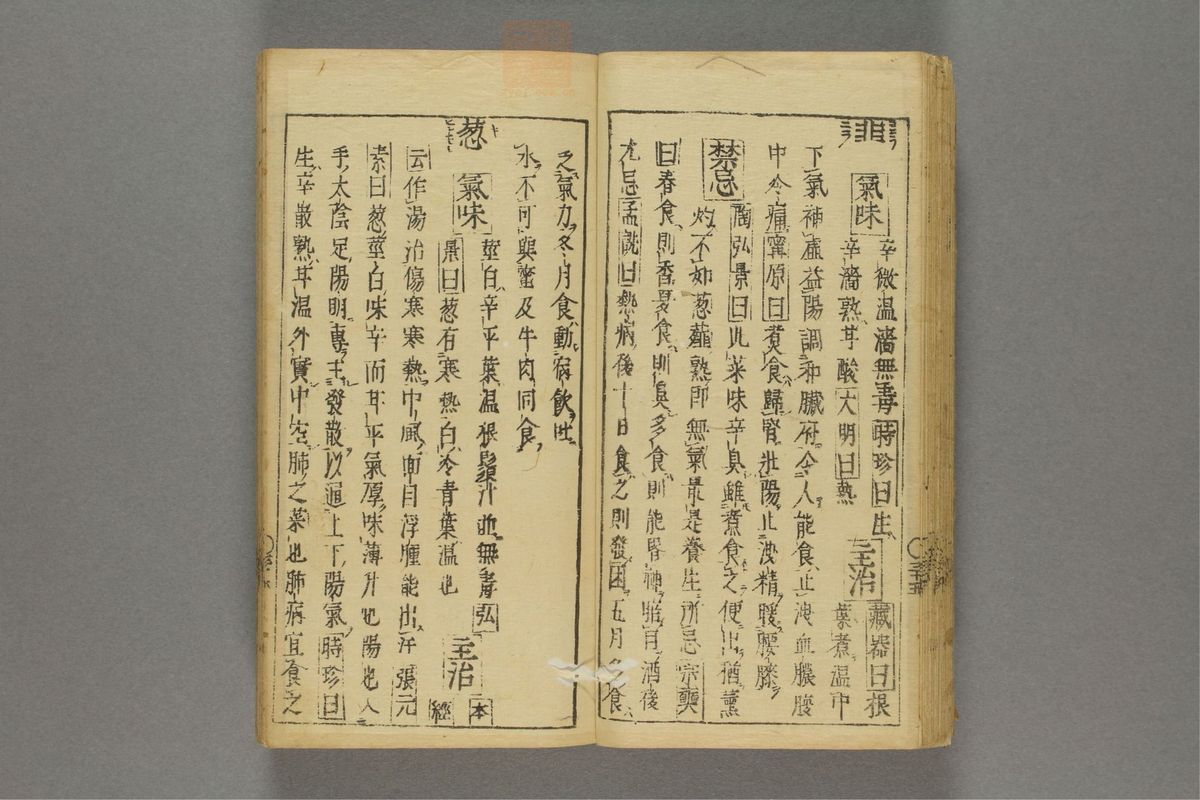 韭
氣味
辛微温濇無毒時珍曰生
辛濇熟甘酸大明曰熱
主治
藏器曰根
葉煮温中
下氣補虚益陽調和臟府令人能食止洩血膿腹
中冷痛甯原曰煑食歸腎壯陽止洩精暖腰膝
禁忌
陶弘景曰此菜味辛臭雖煮食之便出猶薰
灼不如葱薤熟即無氣最是養生所忌宗奭
曰春食則香夏食則臭多食則能昏神暗目酒後
尤忌孟詵曰熱病後十日食之則發困五月多食
乏氣力冬月食動宿飲吐
水不可與蜜及牛肉同食
葱
氣味
莖白辛平葉温根鬚汁並無毒弘
景曰葱有寒熱白冷青葉温也
主治
本
經
云作湯治傷寒寒熱中風面目浮腫能出汗張元
素曰葱莖白味辛而甘平氣厚味薄升也陽也入
手太陰足陽明專主發散以通上下陽氣時珍曰
生辛散熟甘温外實中空肺之菜也肺病宜食之